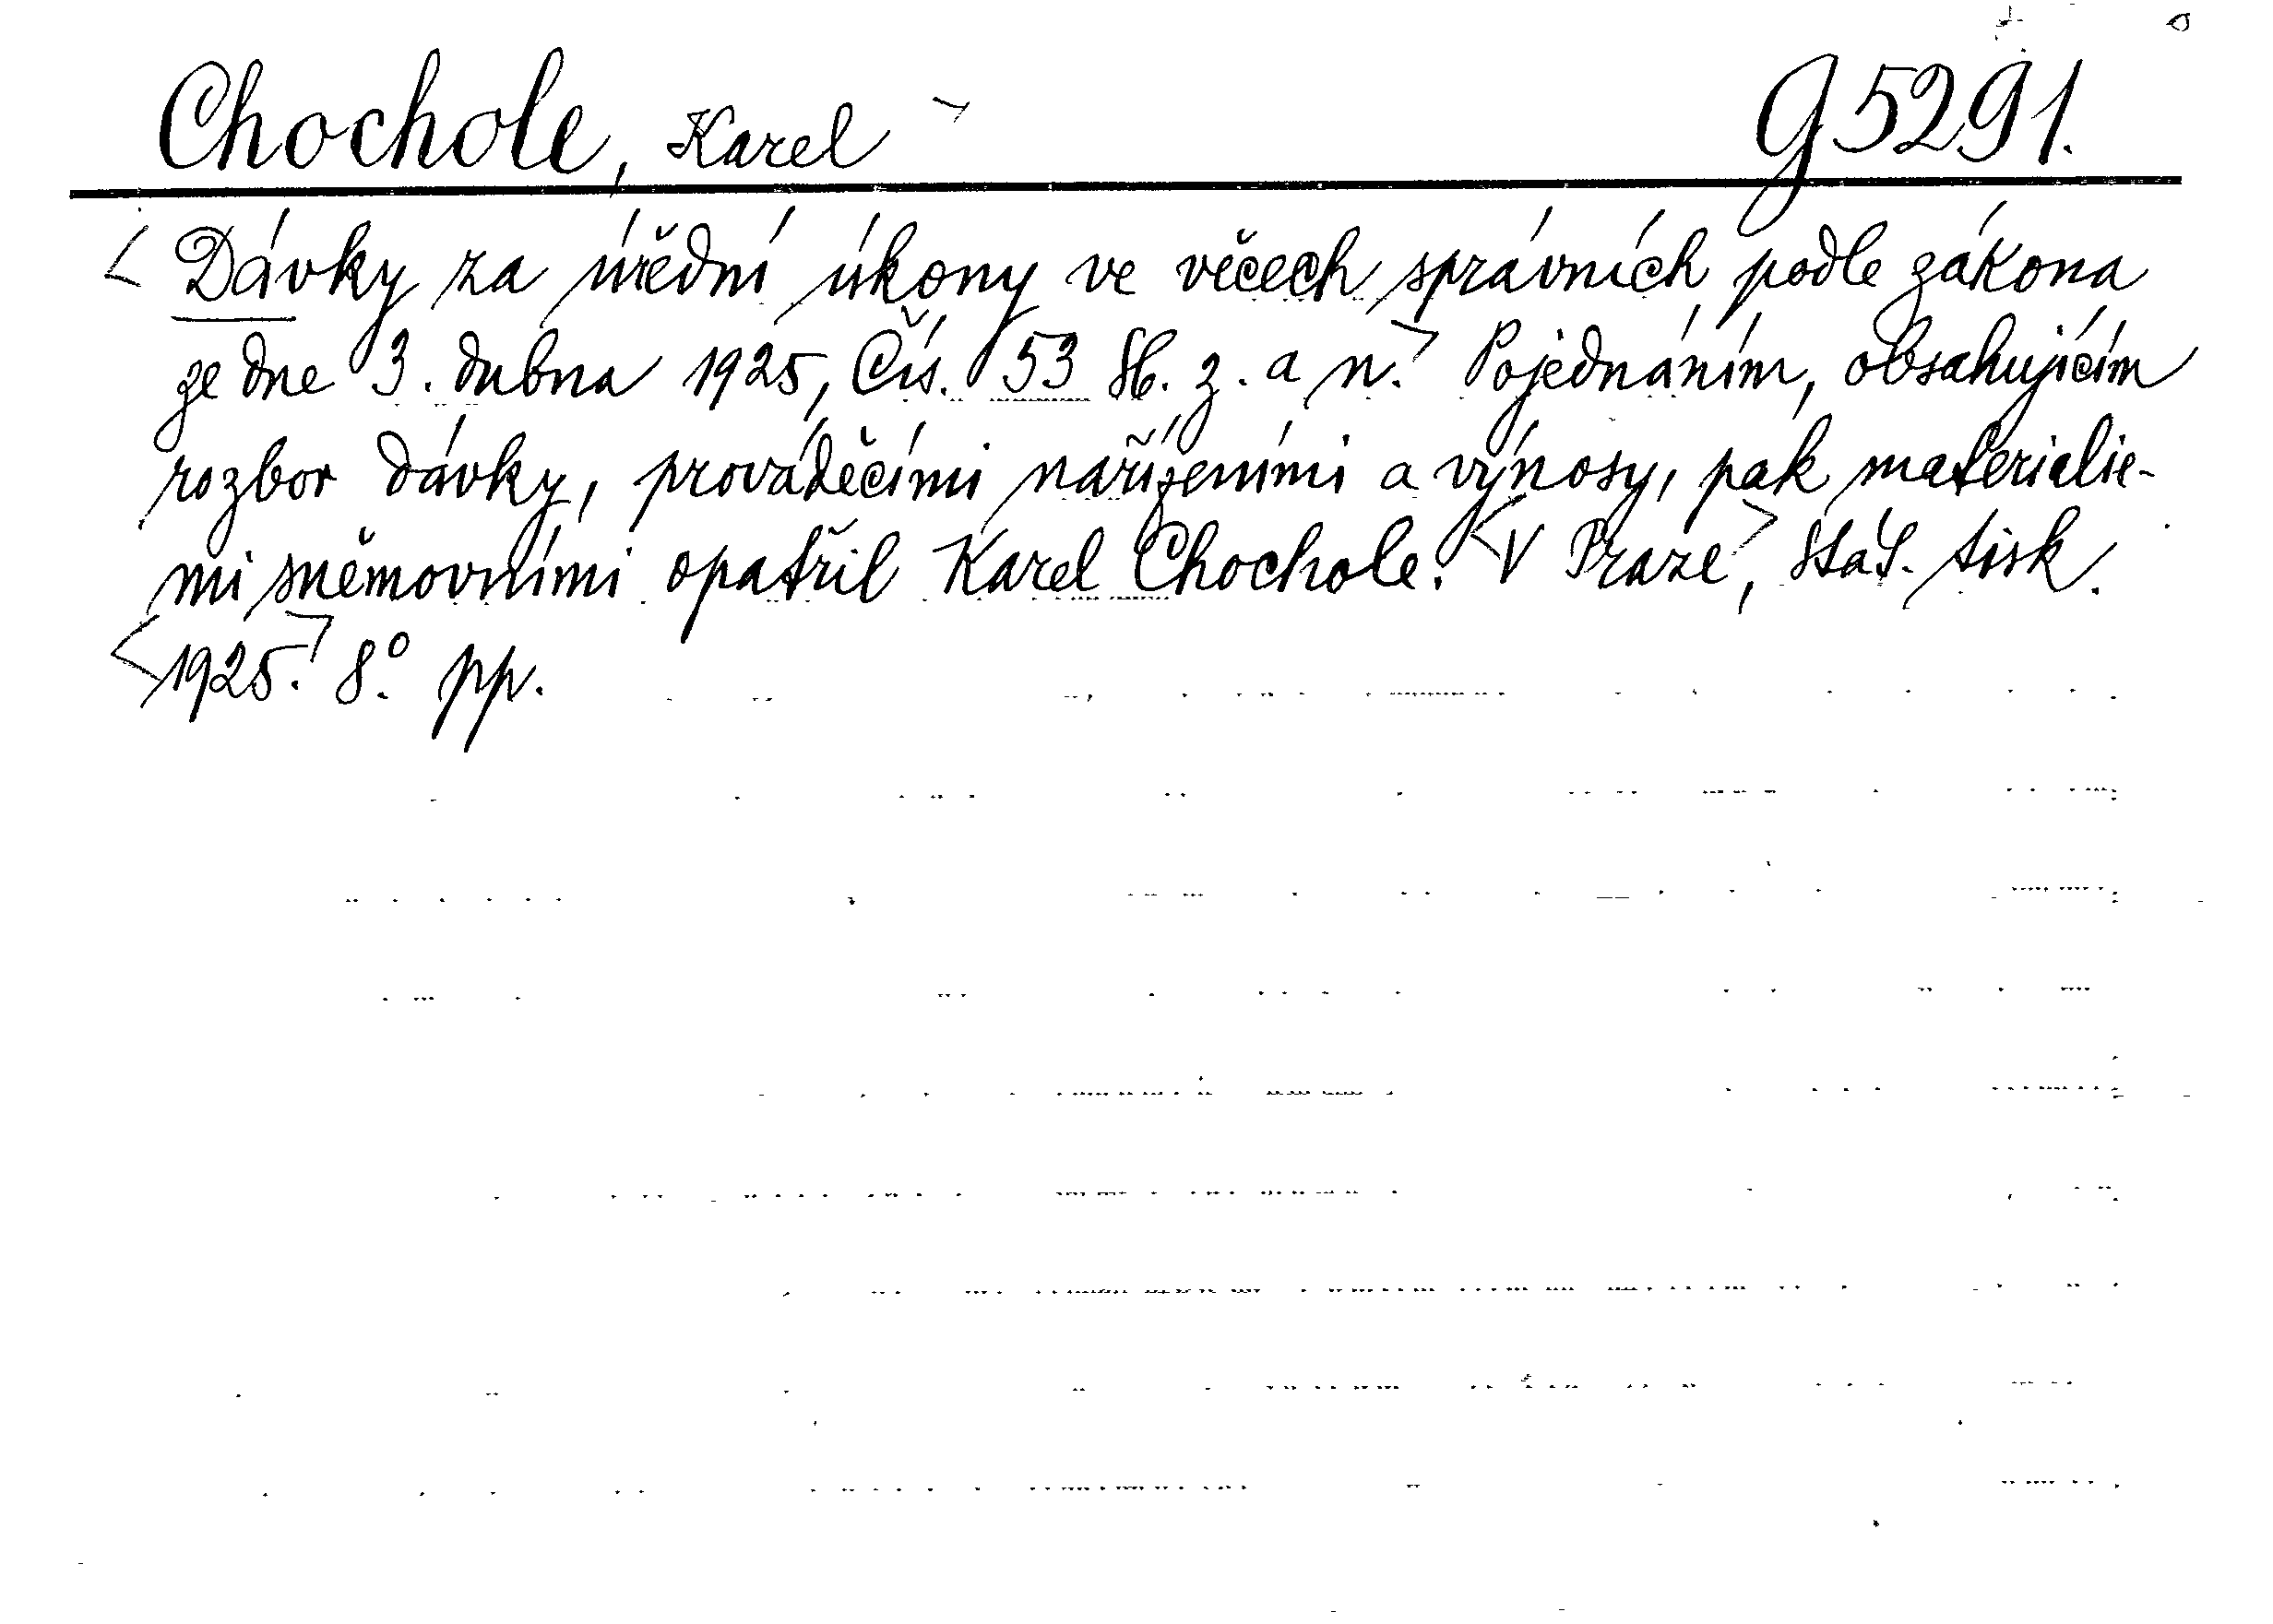 Chochole, Karel G 5291.
Dávky za úřední úkony ve věcech správních podle zákona
ze dne 3. dubna 1925, Čís. 53 Sb. z. a n. Pojednáním, obsahujícím
rozbor dávky, prováděcími nařízeními a výnosy, pak materialie-
mi sněmovními opatřil Karel Chochole. V Praze, Stát. tisk.
1925. 8.° pp.